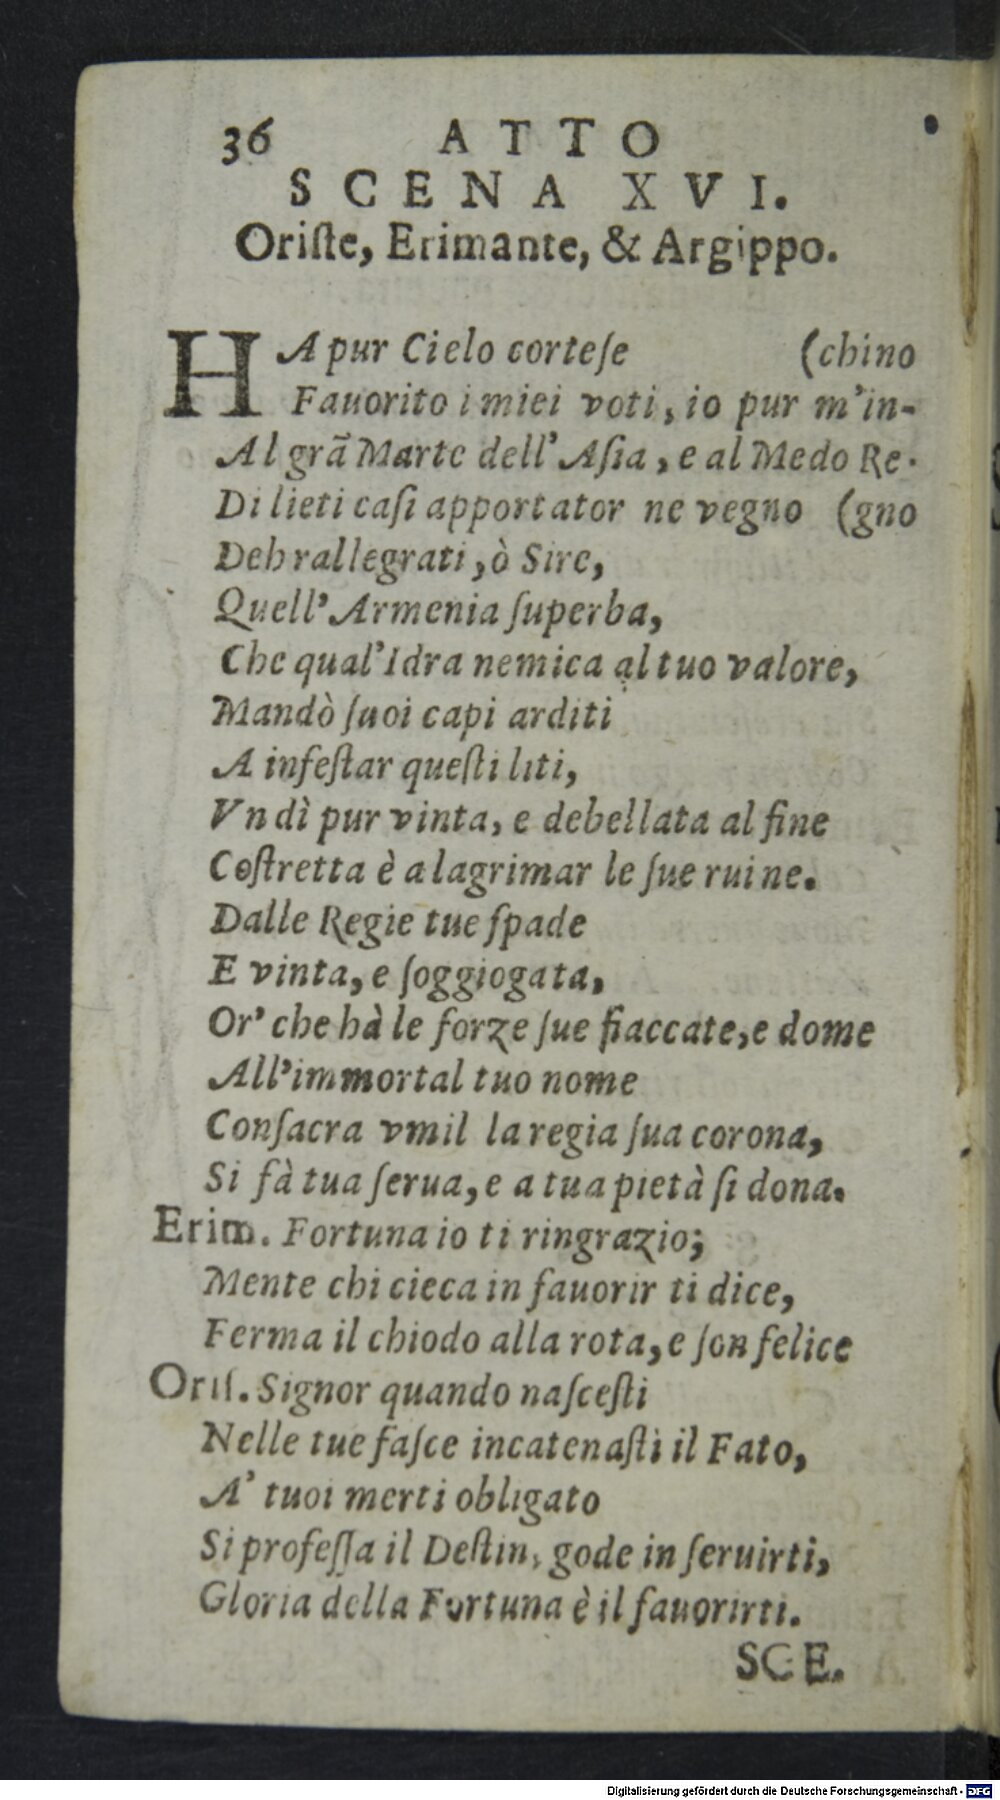 36 ATTO
SCENA XVI.
Oriſte, Erimante, & Argippo.
HA pur Cielo corteſe (chino
Fauorito i miei voti, io pur m'in-
Al grã Marte dell'Aſia, e al Medo Re-
Di lieti caſi apportator ne vegno (gno
Deh rallegrati, ò Sire,
Quell'Armenia ſuperba,
Che qual'Idra nemica al tuo valore,
Mandò ſuoi capi arditi
A infeſtar queſti liti,
Vn dì pur vinta, e debellata al fine
Coſtretta è a lagrimar le ſue ruine.
Dalle Regie tue ſpade
E vinta, e ſoggiogata,
Or' che hà le forze ſue fiaccate, e dome
All'immortal tuo nome
Conſacra vmil la regia ſua corona,
Si fà tua ſerua, e a tua pietà ſi dona.
Erim. Fortuna io ti ringrazio;
Mente chi cieca in fauorir ti dice,
Ferma il chiodo alla rota, e ſon felice
Oriſ. Signor quando naſceſti
Nelle tue faſce incatenaſti il Fato,
A' tuoi merti obligato
Si profeſſa il Deſtin, gode in ſeruirti,
Gloria della Fortuna è il fauorirti.
SCE.
Digitalisierung gefördert durch die Deutsche Forschungsgemeinschaft - DFG